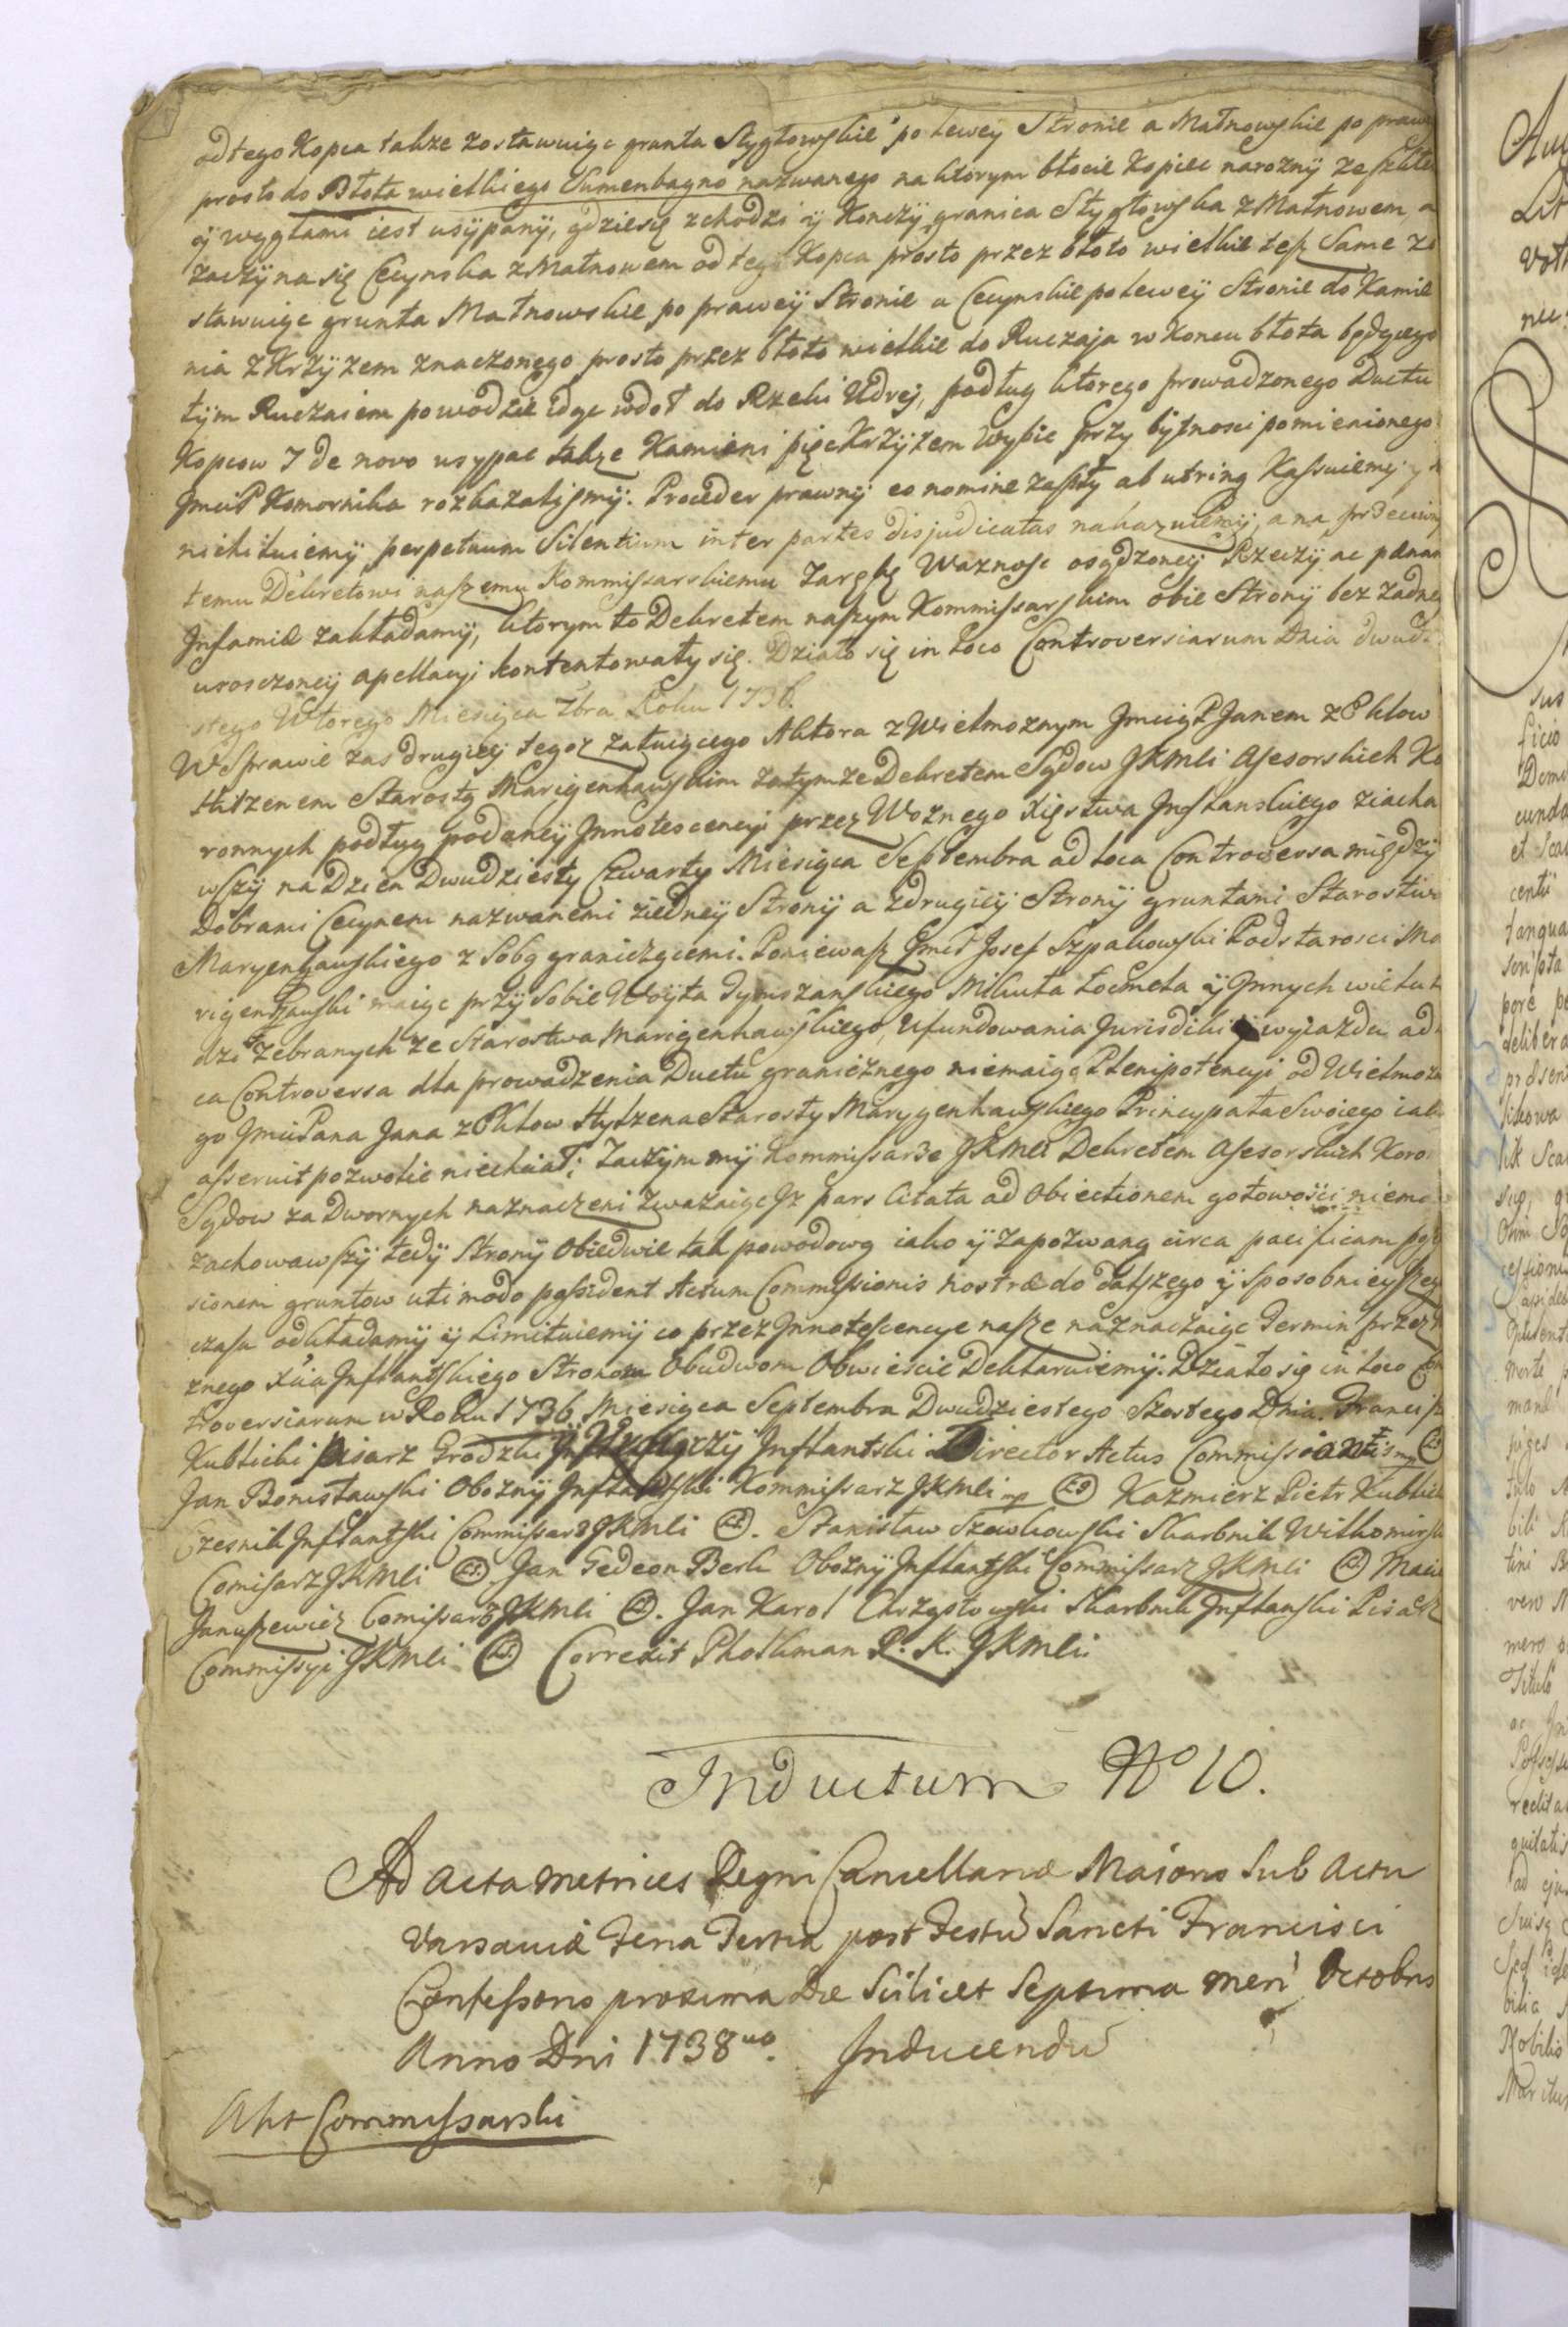 od tego Kopca takze zostawuiąc grunta Stygłowskie po Lewey Stronie a Małnowskie po praw
prosto do Błota wielkiego Sumenbagno nazwanego na ktorym błocie Kopiec narozny ze szkłe
ÿ węgłami iest usÿpanÿ, gdziesię zchodzi ÿ Konczÿ granica Stygłowska z Małnowem a
zaczÿna się Cecynska z Małnowem od tego Kopca prosto przez błoto wielkie tesz Same zo
stawuiąc grunta Małnowskie po prawey Stronie a Cecynskie po Lewey Stronie do Kamie
nia z Krzyzem znaczonego prosto przez błoto wielkie do Ruczaja w Koncu błota będącego
tÿm Ruczaiem po wodzie idąc w doł do Rzeki Udrej, podług ktorego prowadzonego Ductu
Kopcow 7 de novo usypac takze Kamieni pięć Krzyzem Wybic przy bÿtnosci pomienionego
JmciP Komornika rozkazalismÿ. Proceder prawnÿ eo nomine zaszłÿ ab utrinq Kassuiemÿ ÿ
nichiluiemÿ perpetuum Silentium inter partes disjudicatas nakazuiemÿ, a na przeciwn
temu Dekretowi naszemu Kommissarskiemu Zarękę Waznosc osądzoney Rzeczÿ ac pænam
Infamiæ zakładamÿ, ktorym to Dekretem naszym Kommissarskim obie Stronÿ bez zadney
urosczoney apellacyi kontentowały się. Działo się in Loco Controversiarum Dnia dwudz
stego Wtorego Miesiąca 7bra Roku 1736.
W Sprawie zas drugiey tegoz załuiącego Aktora z Wielmoznym Jmcią P Janem z Eklow
Hitzenem Starostą Marigenhauskim zatym ze Dekretem Sądow JKMci Asesorskich Ko
ronnych podług podaney Innotescencyi przez Woznego Xięstwa Inflanskiego ziacha
wszÿ na Dzien Dwudziesty Czwarty Miesiąca Septembra ad Loca Controversa międzÿ
Dobrami Cecynem nazwanemi z iedneÿ Stronÿ a z drugieÿ Stronÿ gruntami Starostwa
Maryenhawskiego z Sobą graniczącemi. Poniewasz Jmć P Josef Szpakowski Podstarosci Ma
rigenhauski maiąc przÿ Sobie Woyta Dymszanskiego Mikuta Łocmela ÿ Innych wielu lu
dzi zebranych ze Starostwa Marigenhawskiego, Ufundowania Jurisdikcyi wyiazdu ad Lo
ca Controversa dla prowadzenia Ductu granicznego niemaiąc Plenipotencyi od Wielmozne
go Jmci Pana Jana z Eklow Hytzena Starosty Marygenhawskiego Princypała Swoiego iako
asseruit pozwolic niechciał; Zaczym mÿ Kommissarze JKMci Dekretem Asesorskich Koro
Sądow za Dwornych naznaczeni zwazaiąc Jz pars Citata ad Obiectionem gotowości niema
zachowawszÿ tedÿ Stronÿ Obiedwie tak powodową iako ÿ zapozwaną circa pacificam poss
sionem gruntow uti modo possident Actum Commissionis nostræ do dalszego ÿ Sposobnieysze
czasu odkładamÿ ÿ Limituiemÿ co przez Innotescencye nasze naznaczaiąc Termin przez W
znego Xtwa Inflantskiego Stronom Obudwom Obwiescic Deklaruiemÿ. Działo się in Loco Con
troversiarum w Roku 1736 Miesiąca Septembra Dwudziestego Szostego Dnia. Francisz
Kublicki Pisarz Grodzki Inflantski Director Actus Commissionis mp LS
Jan Bonisławski Obozny Inflantski Kommissarz JKMci mp LS Kazmierz Pietr Kublick
Czesnik Inflantski Commissarz JKMci LS. Stanisław Szewkowski Skarbnik Wiłkomirsk
Comisarz JKMci LS Jan Gedeon Berk Obozny Inflantski Commissarz JKMci LS Maci
Januszewicz Comissarz JKMci LS. Jan Karol Chrzystowski Skarbnik Inflanski Pisarz
Commissyi JKMci LS Correxit Pholkman P. K. JKMci.
Inductum No 10.
Ad Acta Metrices Regni Cancellariæ Maioris Sub Actu
Varsaviæ Feria Tertia post Festu Sancti Francisci
Confessoris proxima Die Scilicet Septima men Octobris
Anno Dni 1738vo. Inducendu
Akt Commissarski